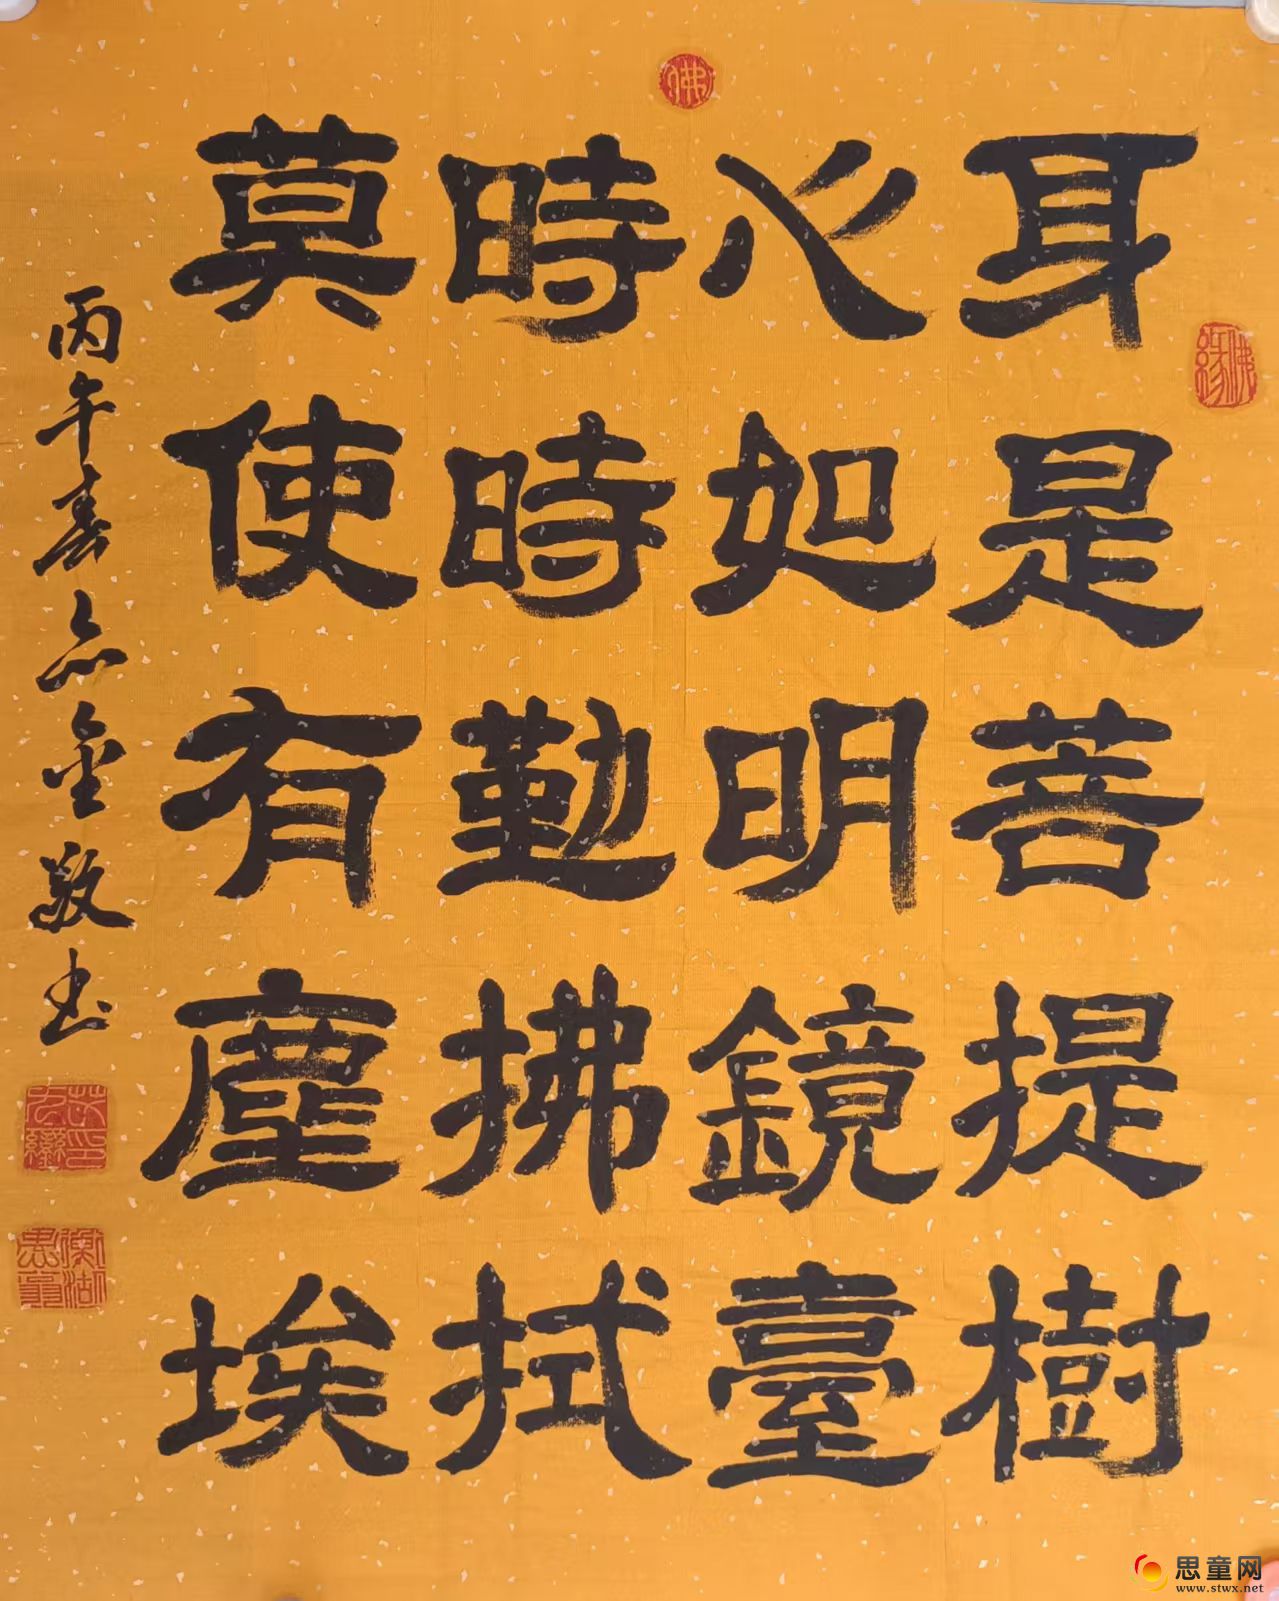 佛
佛缘
身是菩提樹
心如明鏡臺
時時勤拂拭
莫使有塵埃
丙午春志金敬书
思童网
www.stwx.net